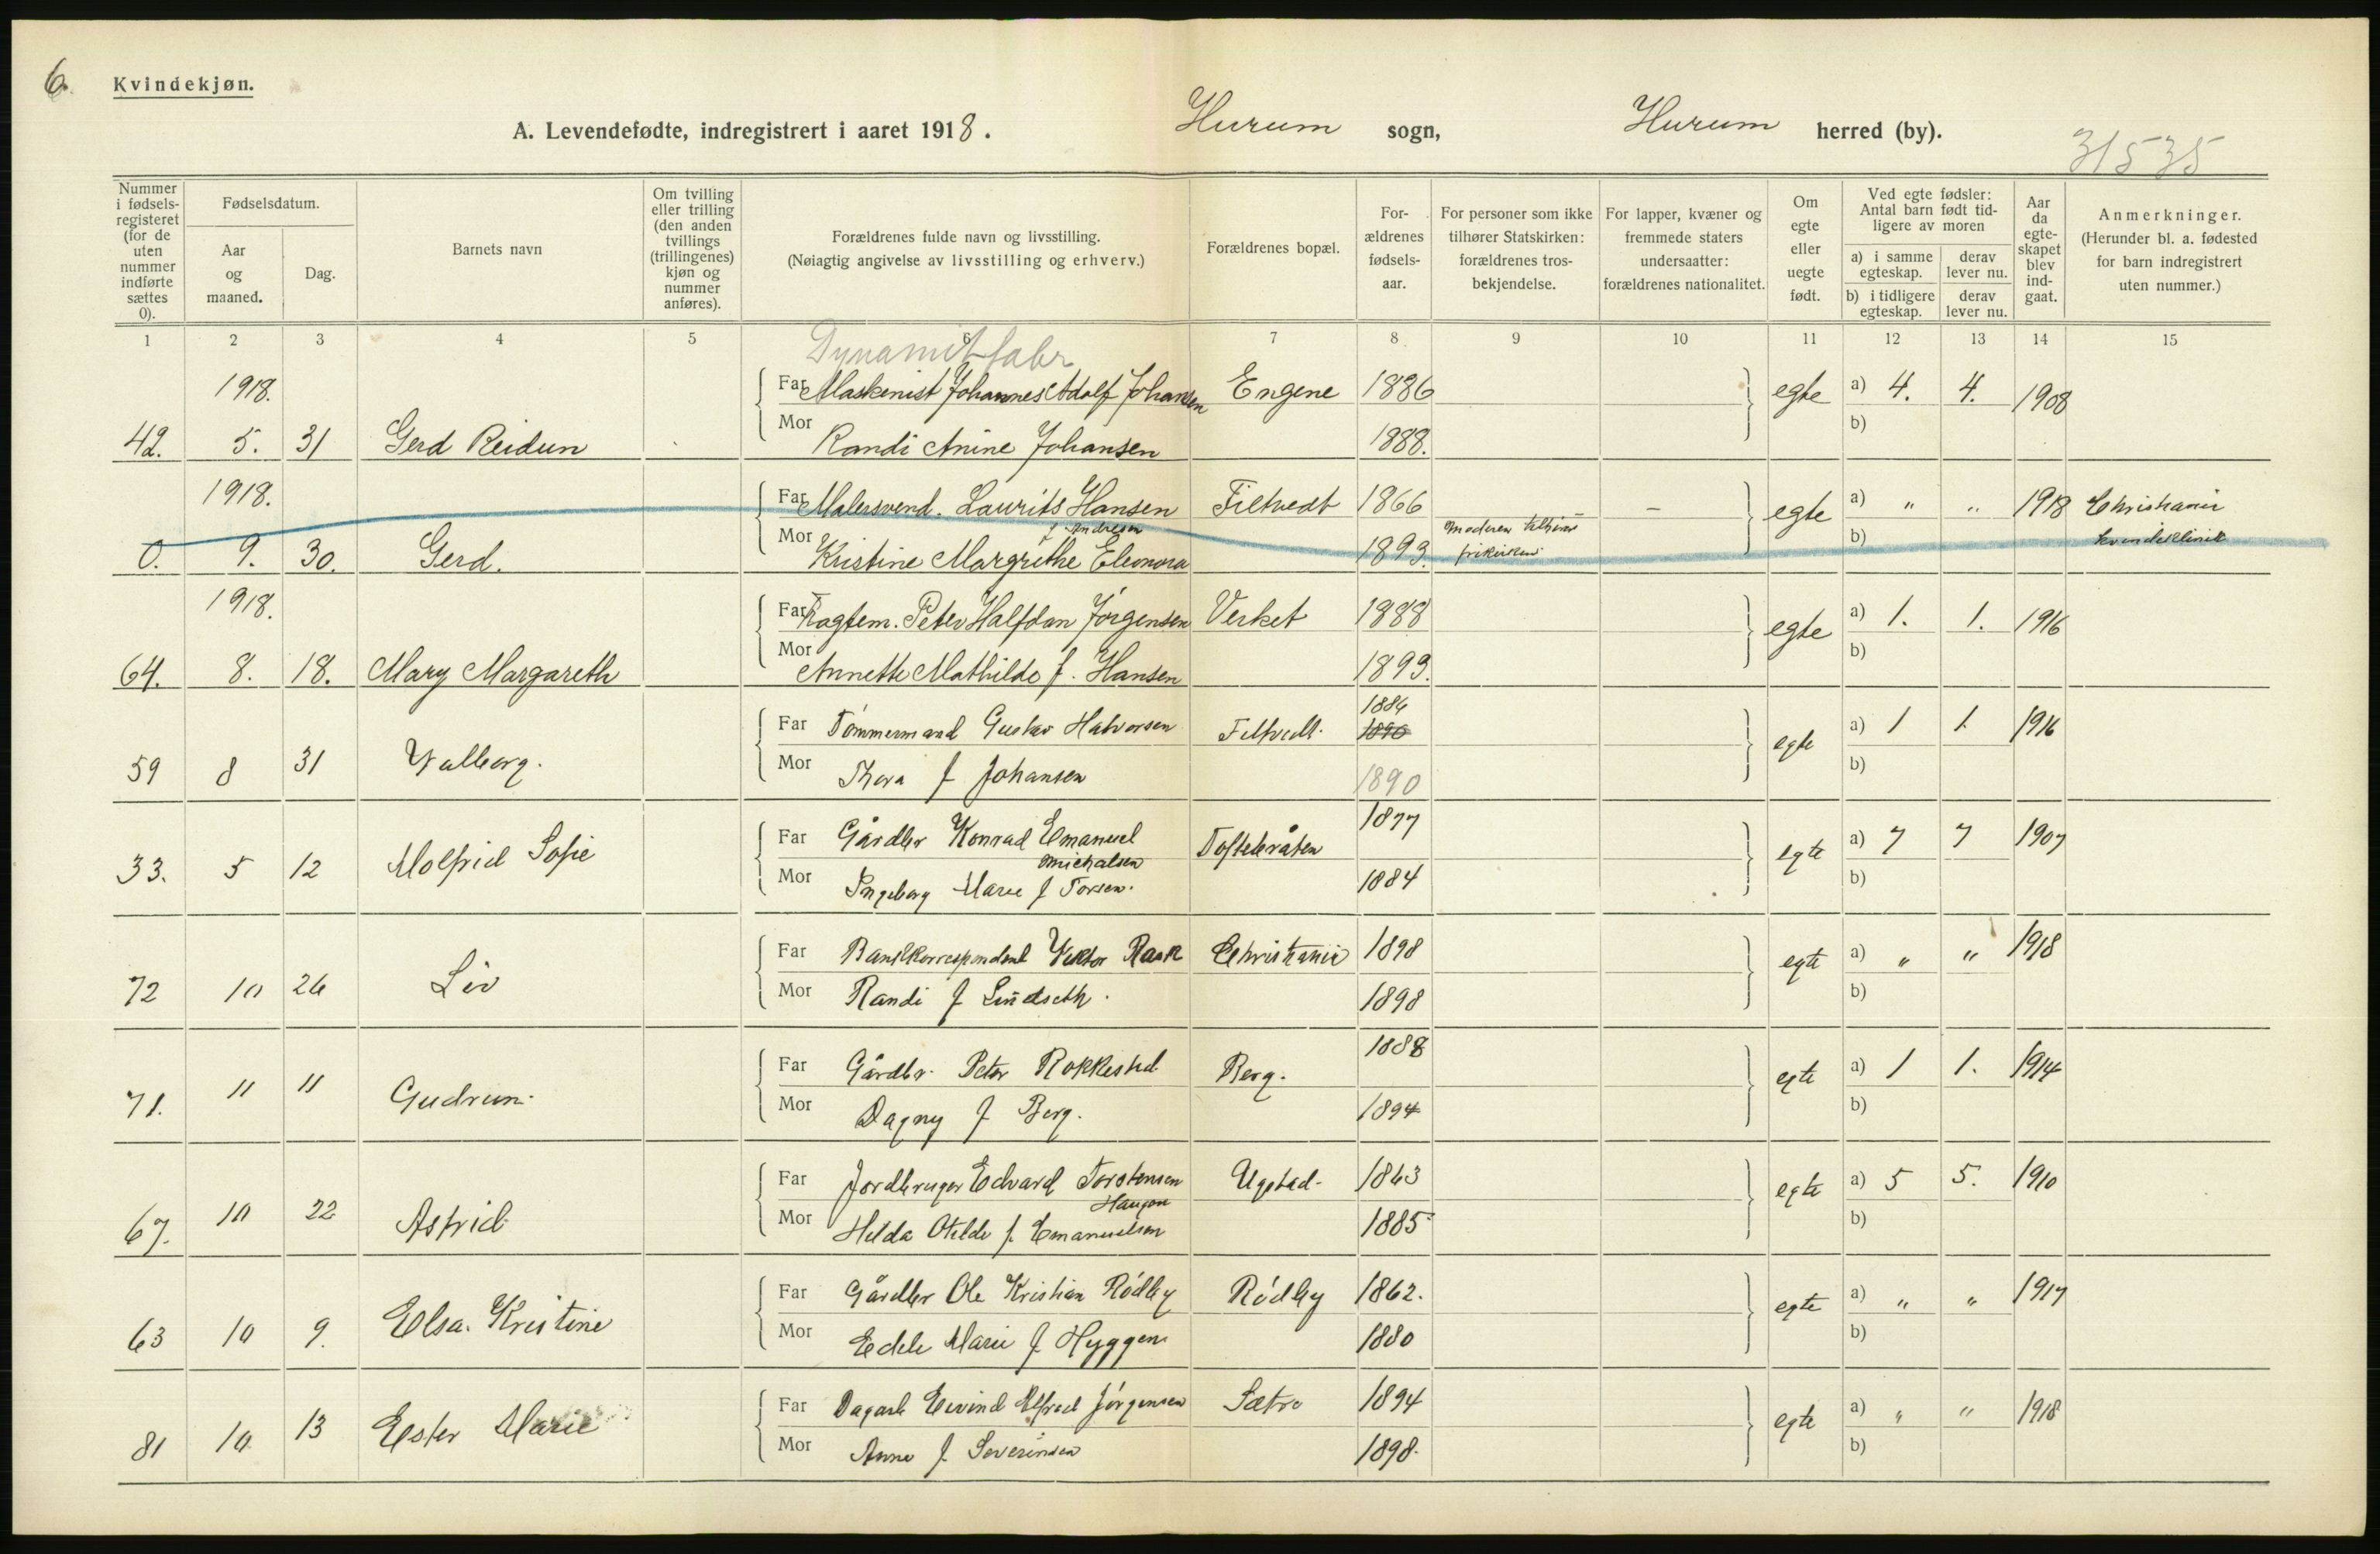 6.
Kvindekjøn.
A. Levendefødte, indregistrert i aaret 1918. Hurum sogn, Hurum herred (by).
31535
Nummer i fødsels-registeret (for de uten nummer indførte sættes 0).
Fødselsdatum.
Aar og maaned.
Dag.
Barnets navn
Om tvilling eller trilling (den anden tvillings (trillingenes) kjøn og nummer anføres).
Forældrenes fulde navn og livsstilling.
(Nøiagtig angivelse av livsstilling og erhverv.)
Forældrenes bopæl.
For-ældrenes fødsels-aar.
For personer som ikke tilhører Statskirken: forældrenes tros-bekjendelse.
For lapper, kvæner og fremmede staters undersaatter: forældrenes nationalitet.
Om egte eller uegte født.
Ved egte fødsler: Antal barn født tid-ligere av moren
a) i samme egteskap.
derav lever nu.
b) i tidligere egteskap.
derav lever nu.
Aar da egte-skapet blev ind-gaat.
Anmerkninger.
(Herunder bl. a. fødested for barn indregistrert uten nummer.)
1 2 3 4 5 6 7 8 9 10 11 12 13 14 15
Dynamitfabr
1918. Far Maskinist Johannes Adolf Johansen Engene 1886 egte a) 4. 4. 1908
42. 5. 31 Gerd Reidun Mor Randi Anine Johansen 1888. b)
1918. Far Malersvend. Laurits Hansen Filtvedt 1866 – – egte a) " " 1918 Christiania
f Andresen
0. 9. 30. Gerd. Mor Kristine Margrethe Eleonora 1893. Moderen tilhører frikirken b) kvindeklinik
1918. Far Fragtem. Peter Halfdan Jørgensen Verket 1888 egte a) 1. 1. 1916
64. 8. 18. Mary Margareth Mor Annette Mathilde f. Hansen 1893. b)
1886
Far Tømmermand Gustav Halvorsen Filtvedt. 1890 egte a) 1 1 1916
59 8 31 Valborg. Mor Thora f Johansen 1890 b)
Far Gårdbr Konrad Emanuel Michalsen Toftebråten 1877 egte a) 7 7 1907
33. 5 12 Molfrid Sofie Mor Ingeborg Marie f Torsen. 1884 b)
Far Bankkorrespondent Viktor Rask Christiania 1898 egte a) " " 1918
72 10 26 Liv Mor Randi f Lindseth. 1898 b)
Far Gårdbr. Peter Rokkestad Berg. 1888 egte a) 1 1. 1914
71. 11 11 Gudrun. Mor Dagny f Berg. 1894 b)
Far Jordbruger Edvard Torstensen Haugen Ugstad. 1863 egte a) 5 5. 1910
67. 10 22 Astrid Mor Hilda Otilde f. Emanuelsen 1885 b)
Far Gårdbr Ole Kristian Rødby Rødby 1862. egte a) " " 1917
63 10 9. Elsa. Kristine Mor Edele Marie f Hyggen 1880 b)
Far Dagarb Eivind Alfred Jørgensen Sætre 1894 egte a) " " 1918
81 10 13 Ester Marie Mor Anna f. Severinsen 1898. b)